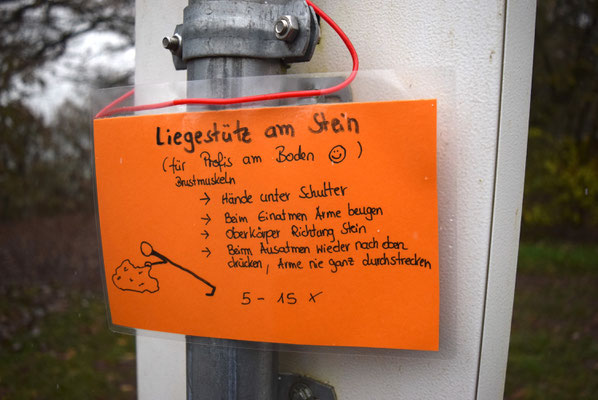 Liegestütz am Stein
(für Profis am Boden ☺)
Brustmuskeln
→ Hände unter Schulter
→ Beim Einatmen Arme beugen
→ Oberkörper Richtung Stein
→ Beim Ausatmen wieder nach oben
drücken, Arme nie ganz durchstrecken
5 - 15 x